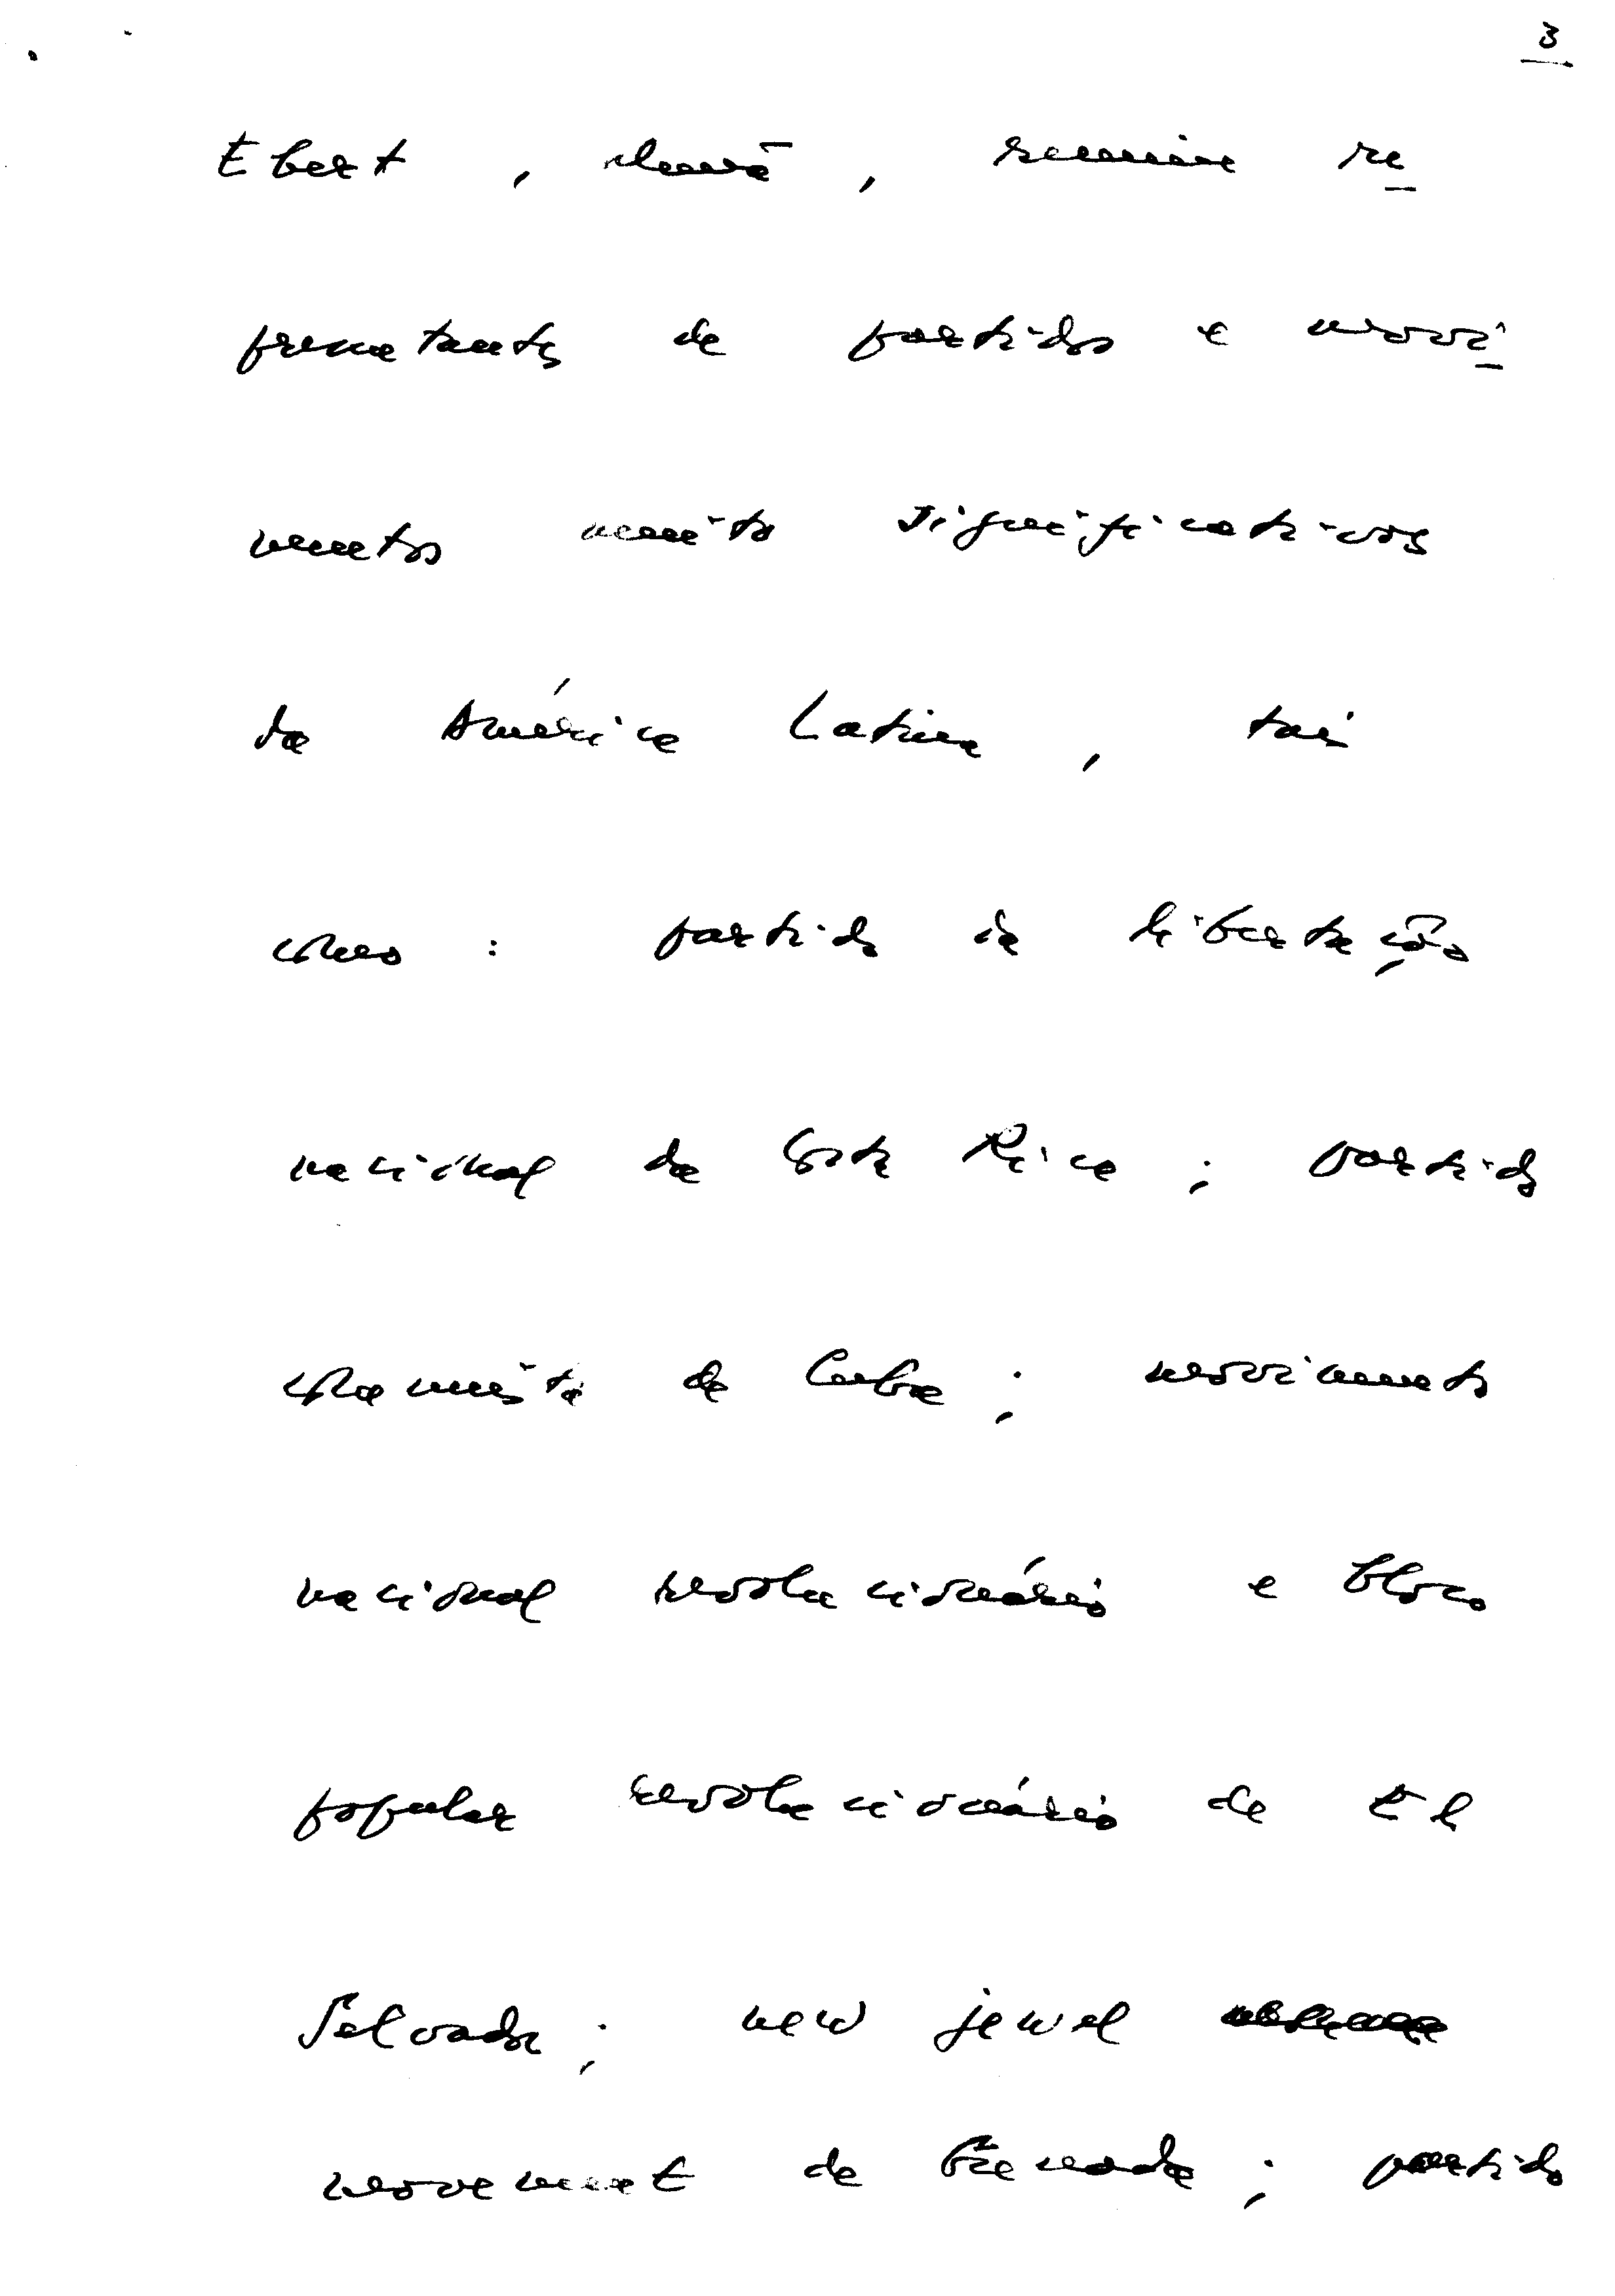 3
Ebert, alemã, reunine re
presentantes de partidos e movi
mentos muito significativos
da América Latina, tais
como: partido da libertação
nacional da Costa Rica; partido
comunista de Cuba; movimento
nacional revolucionário e bloco
popular revolucionário de El
Salvador; new jewel
movement de Grenada; partido